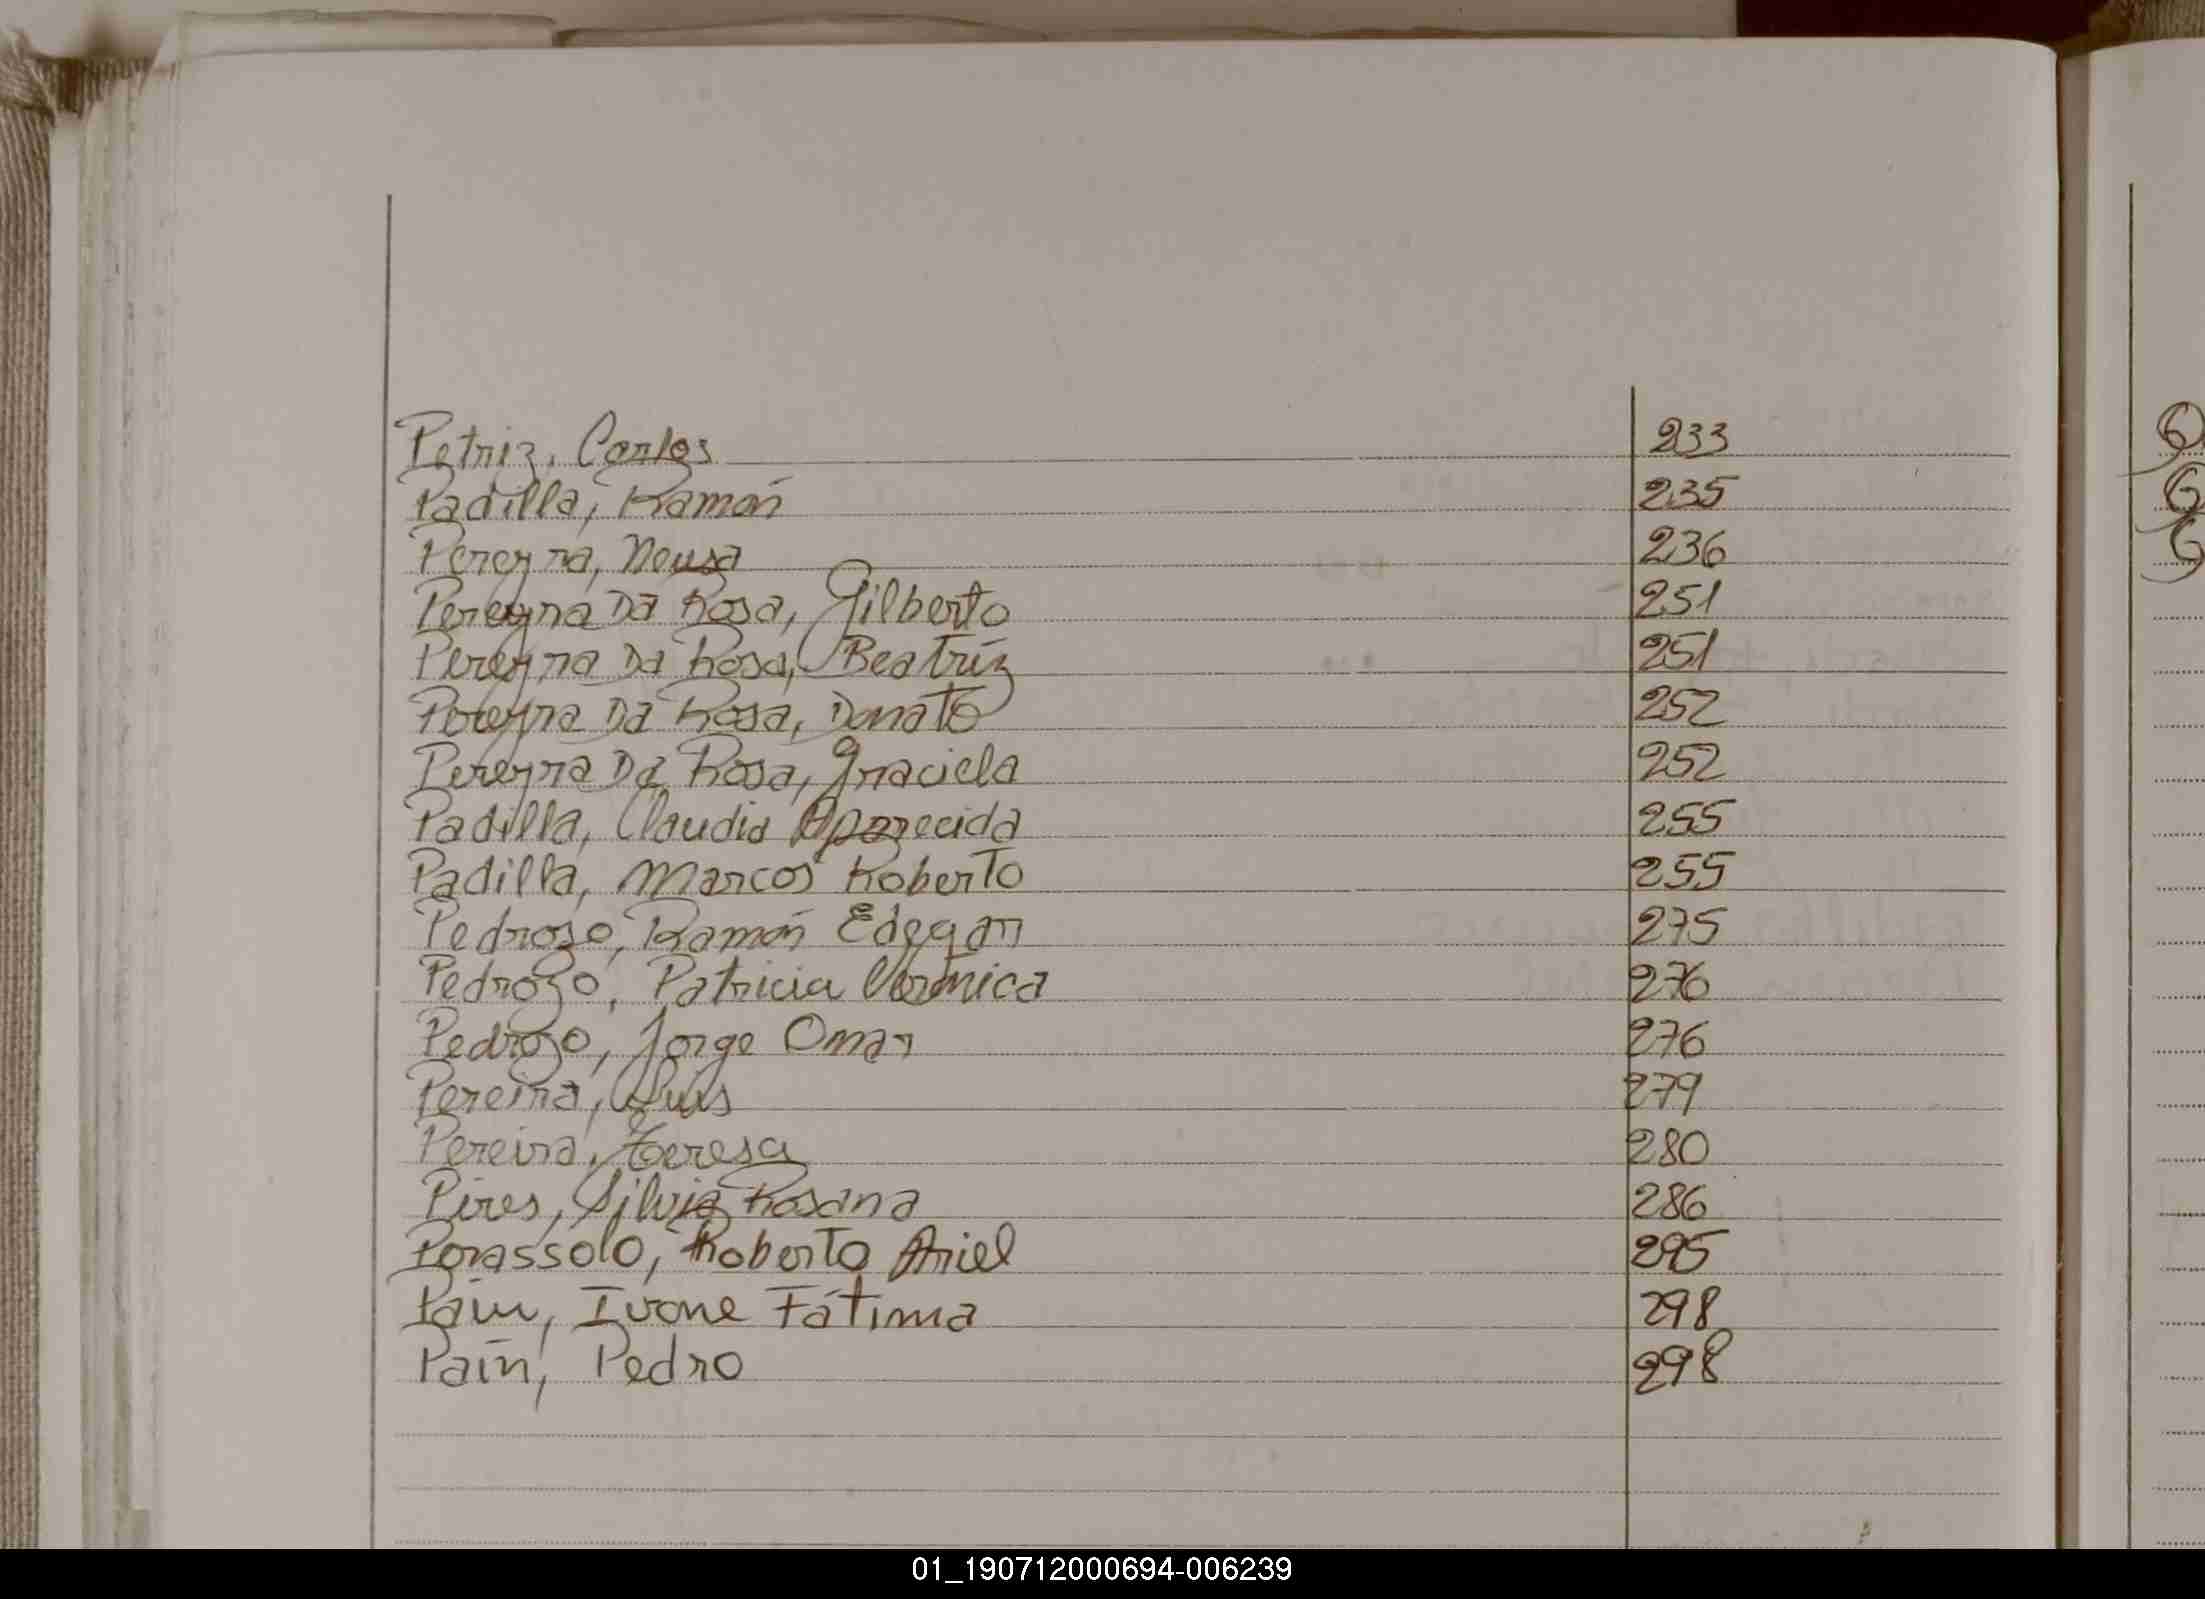 Petriz, Carlos 233
Padilla, Ramón 235
Pereyra, Neusa 236
Pereyra Da Rosa, Gilberto 251
Pereyra Da Rosa, Beatríz 251
Pereyra Da Rosa, Donato 252
Pereyra Da Rosa, Graciela 252
Padilla, Claudia Aparecida 255
Padilla, Marcos Roberto 255
Pedrozo, Ramón Edegar 275
Pedrozo, Patricia Verónica 276
Pedrozo, Jorge Omar 276
Pereira, Luis 279
Pereira, Teresa 280
Pires, Silvia Rosana 286
Porassolo, Roberto Ariel 295
Pain, Ivone Fátima 298
Pain, Pedro 298
01_190712000694-006239